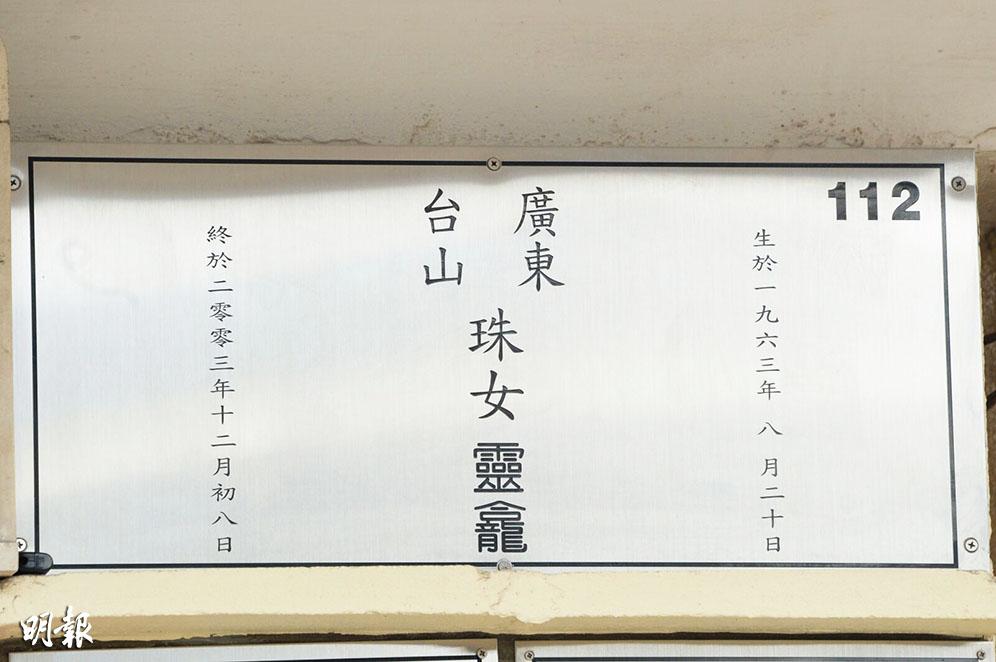 112
生於一九六三年八月二十日
廣東
台山
珠女靈龕
終於二零零三年十二月初八日
明報